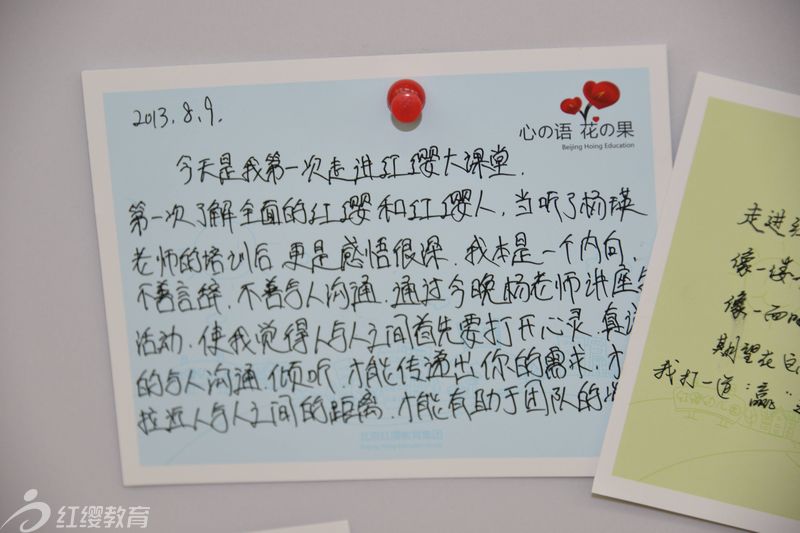 2013.8.9.
心の语 花の果
Beijing Hoing Education
今天是我第一次走进红缨大课堂.
第一次了解全面的红缨和红缨人,当听了杨瑛
老师的培训后,更是感悟很深.我本是一个内向,
不善言辞,不善与人沟通,通过今晚杨老师讲座与
活动,使我觉得人与人之间首先要打开心灵,真
的与人沟通,倾听,才能传递出你的需求,才
拉近人与人之间的距离,才能有助于团队的
北京红缨教育集团
走进
像一
像一
期望花
我打一道"赢"
红缨教育